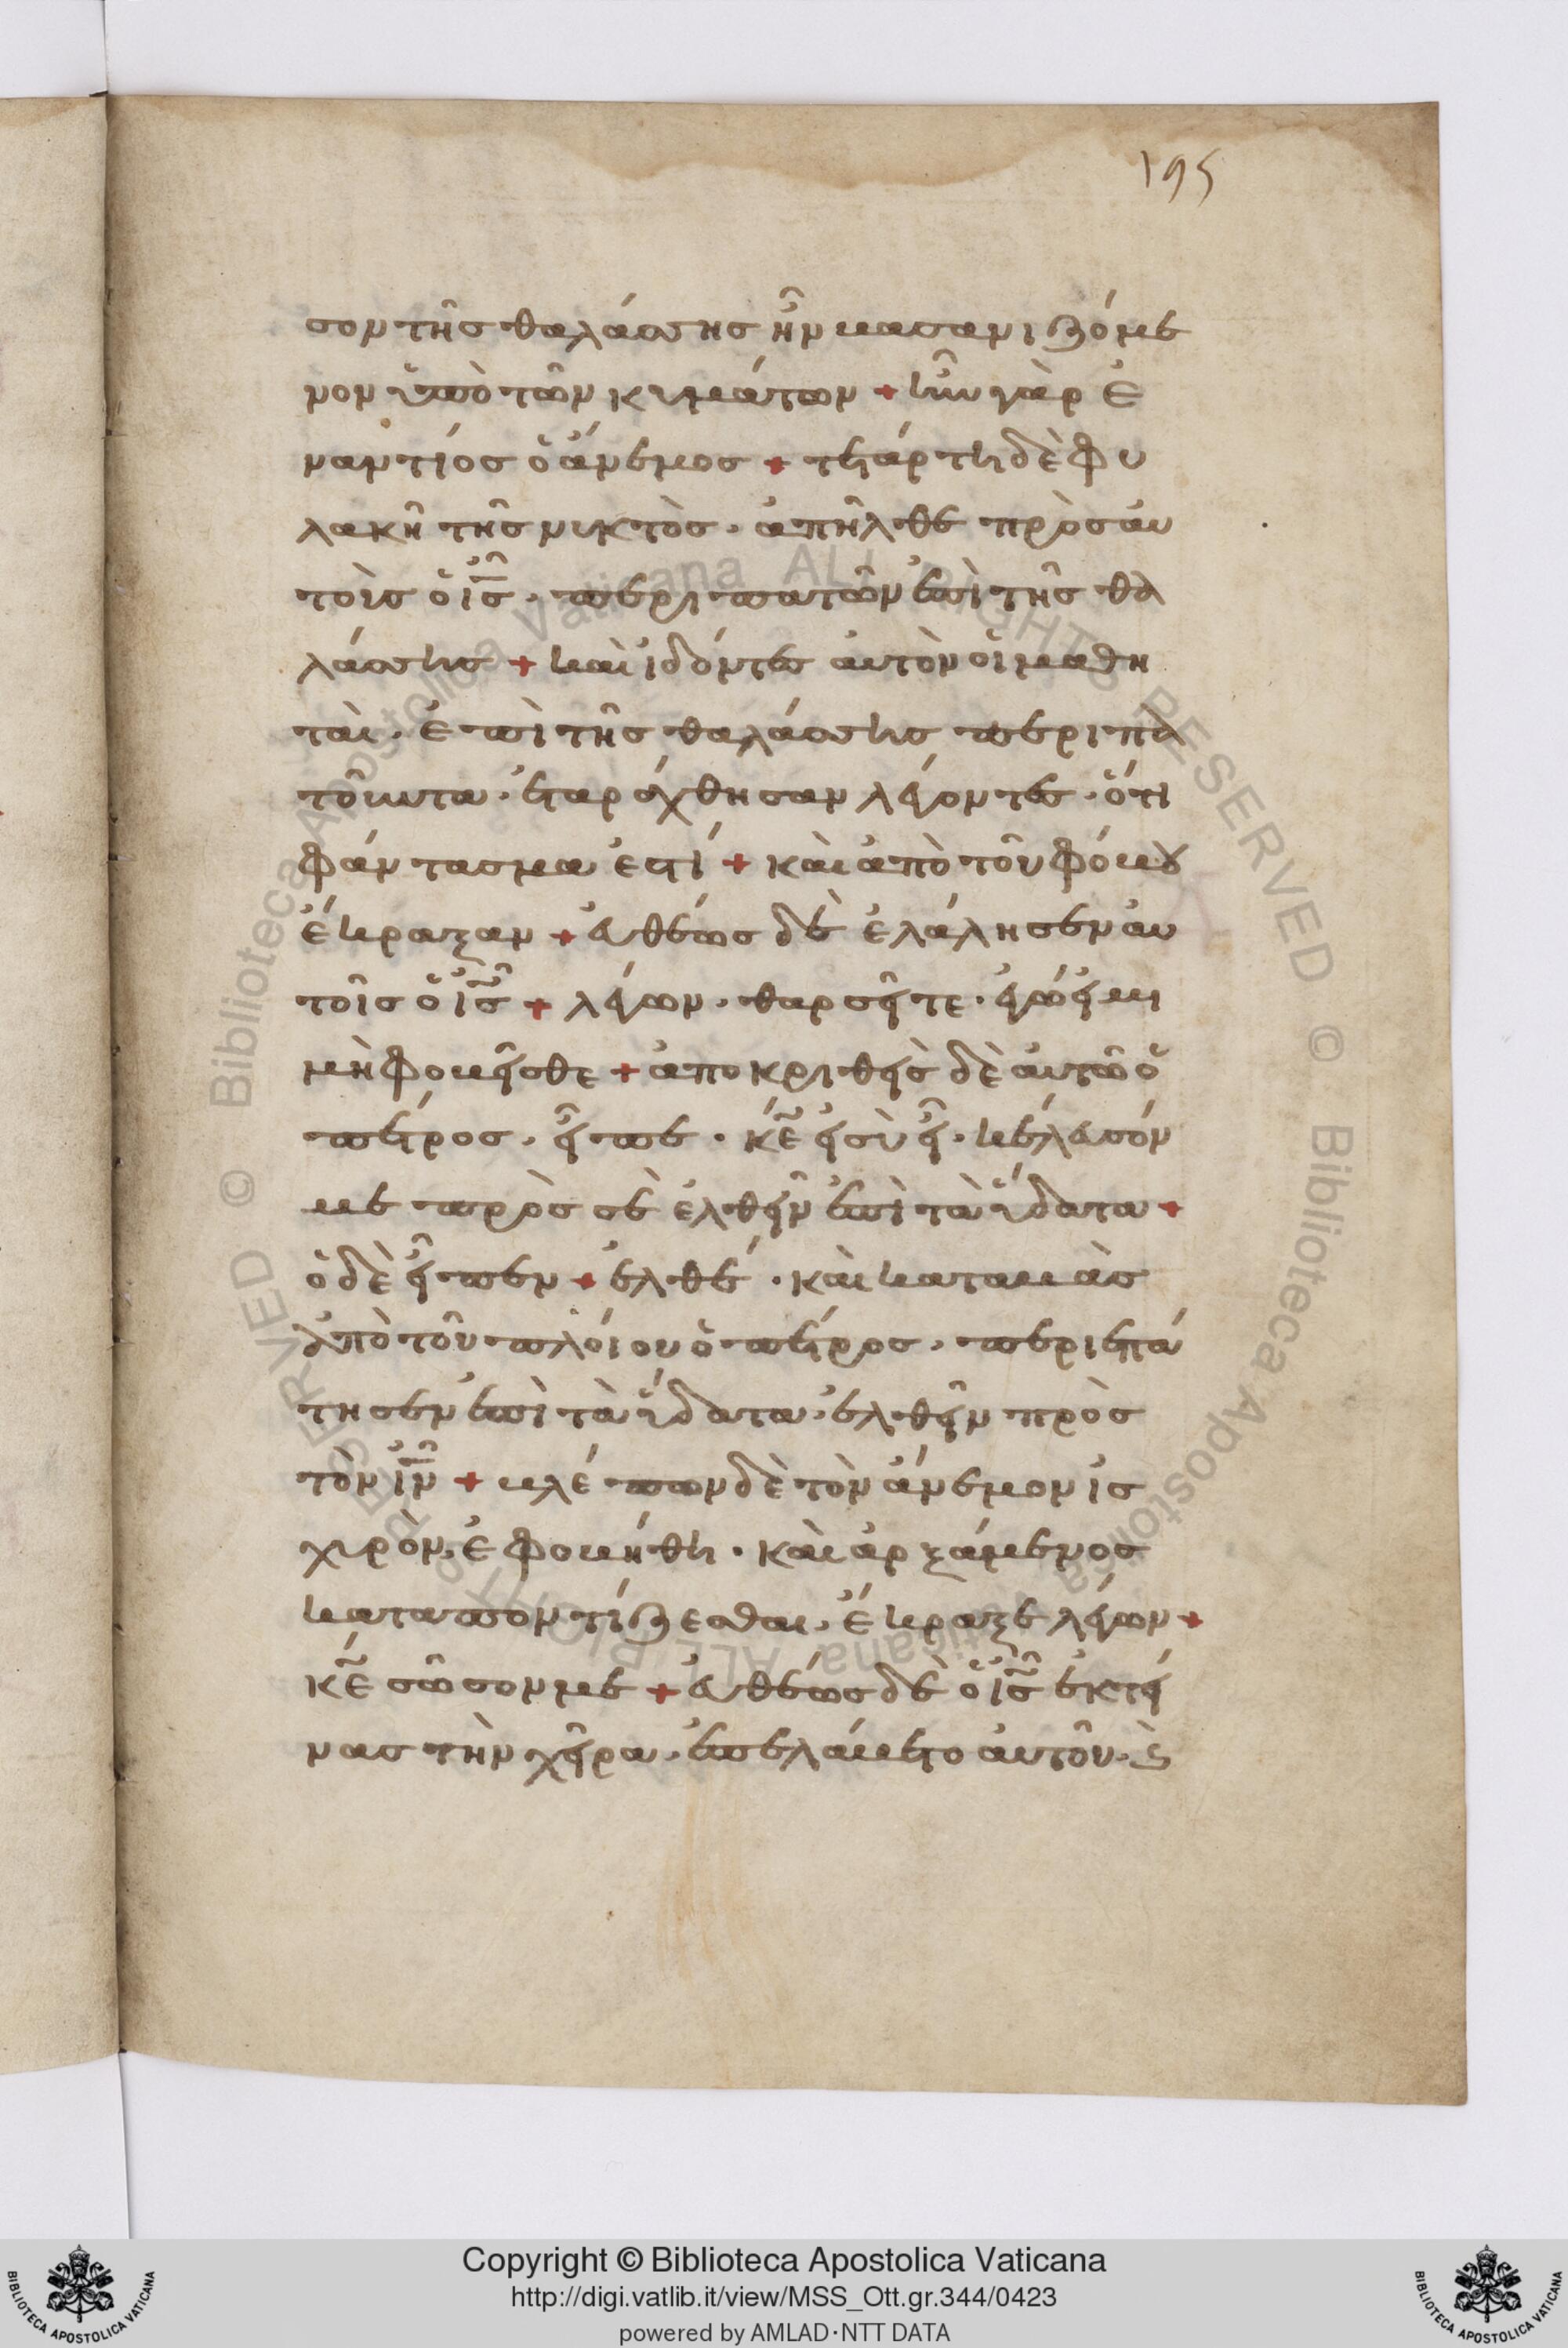 195
σον τῆς θαλάσσης ἦν βασανιζόμε
νον ὑπὸ τῶν κυμάτων + ἦν γὰρ ἐ
ναντίος ὁ ἄνεμος + τετάρτη δὲ φυ
λακῆ τῆς νυκτὸς · ἀπῆλθε πρὸς αὐ
τοὺς ὁ ις̅ · περιπατῶν ἐπὶ τῆς θα
λάσσης + καὶ ἰδόντες αὐτὸν οἱ μαθη
ταὶ · ἐπὶ τῆς θαλάσσης περιπα
τοῦντα · ἐταράχθησαν λέγοντες · ὅτι
φάντασμα ἐστί + καὶ ἀπὸ τοῦ φόβου
ἔκραξαν + εὐθέως δὲ ἐλάλησεν αὐ
τοῖς ὁ ις̅ + λέγων · θαρσεῖτε · ἐγώ εἰμι
μὴ φοβεῖσθε + ἀποκριθεὶς δὲ αὐτῶ ὁ
πέτρος · εἶπε · κε̅ εἰ σὺ εἶ · κέλευσόν
με πρὸς σὲ ἐλθεῖν ἐπὶ τὰ ὕδατα +
ὁ δὲ εἶπεν + ἐλθέ · καὶ καταβὰς
ἀπὸ τοῦ πλοίου ὁ πέτρος · περιεπά
τησεν ἐπὶ τὰ ὕδατα · ἐλθεῖν πρὸς
τὸν ιν̅ + βλέπων δὲ τὸν ἄνεμον ἰσ
χυρὸν · ἐφοβήθη · καὶ ἀρξάμενος
καταποντίζεσθαι · ἔκραξε λέγων +
κε̅ σῶσον με + εὐθέως δὲ ὁ ις̅ ἐκτεί
νας τὴν χεῖρα · ἐπελάβετο αὐτοῦ · ϗ
Copyright © Biblioteca Apostolica Vaticana
http://digi.vatlib.it/view/MSS_Ott.gr.344/0423
powered by AMLAD·NTT DATA